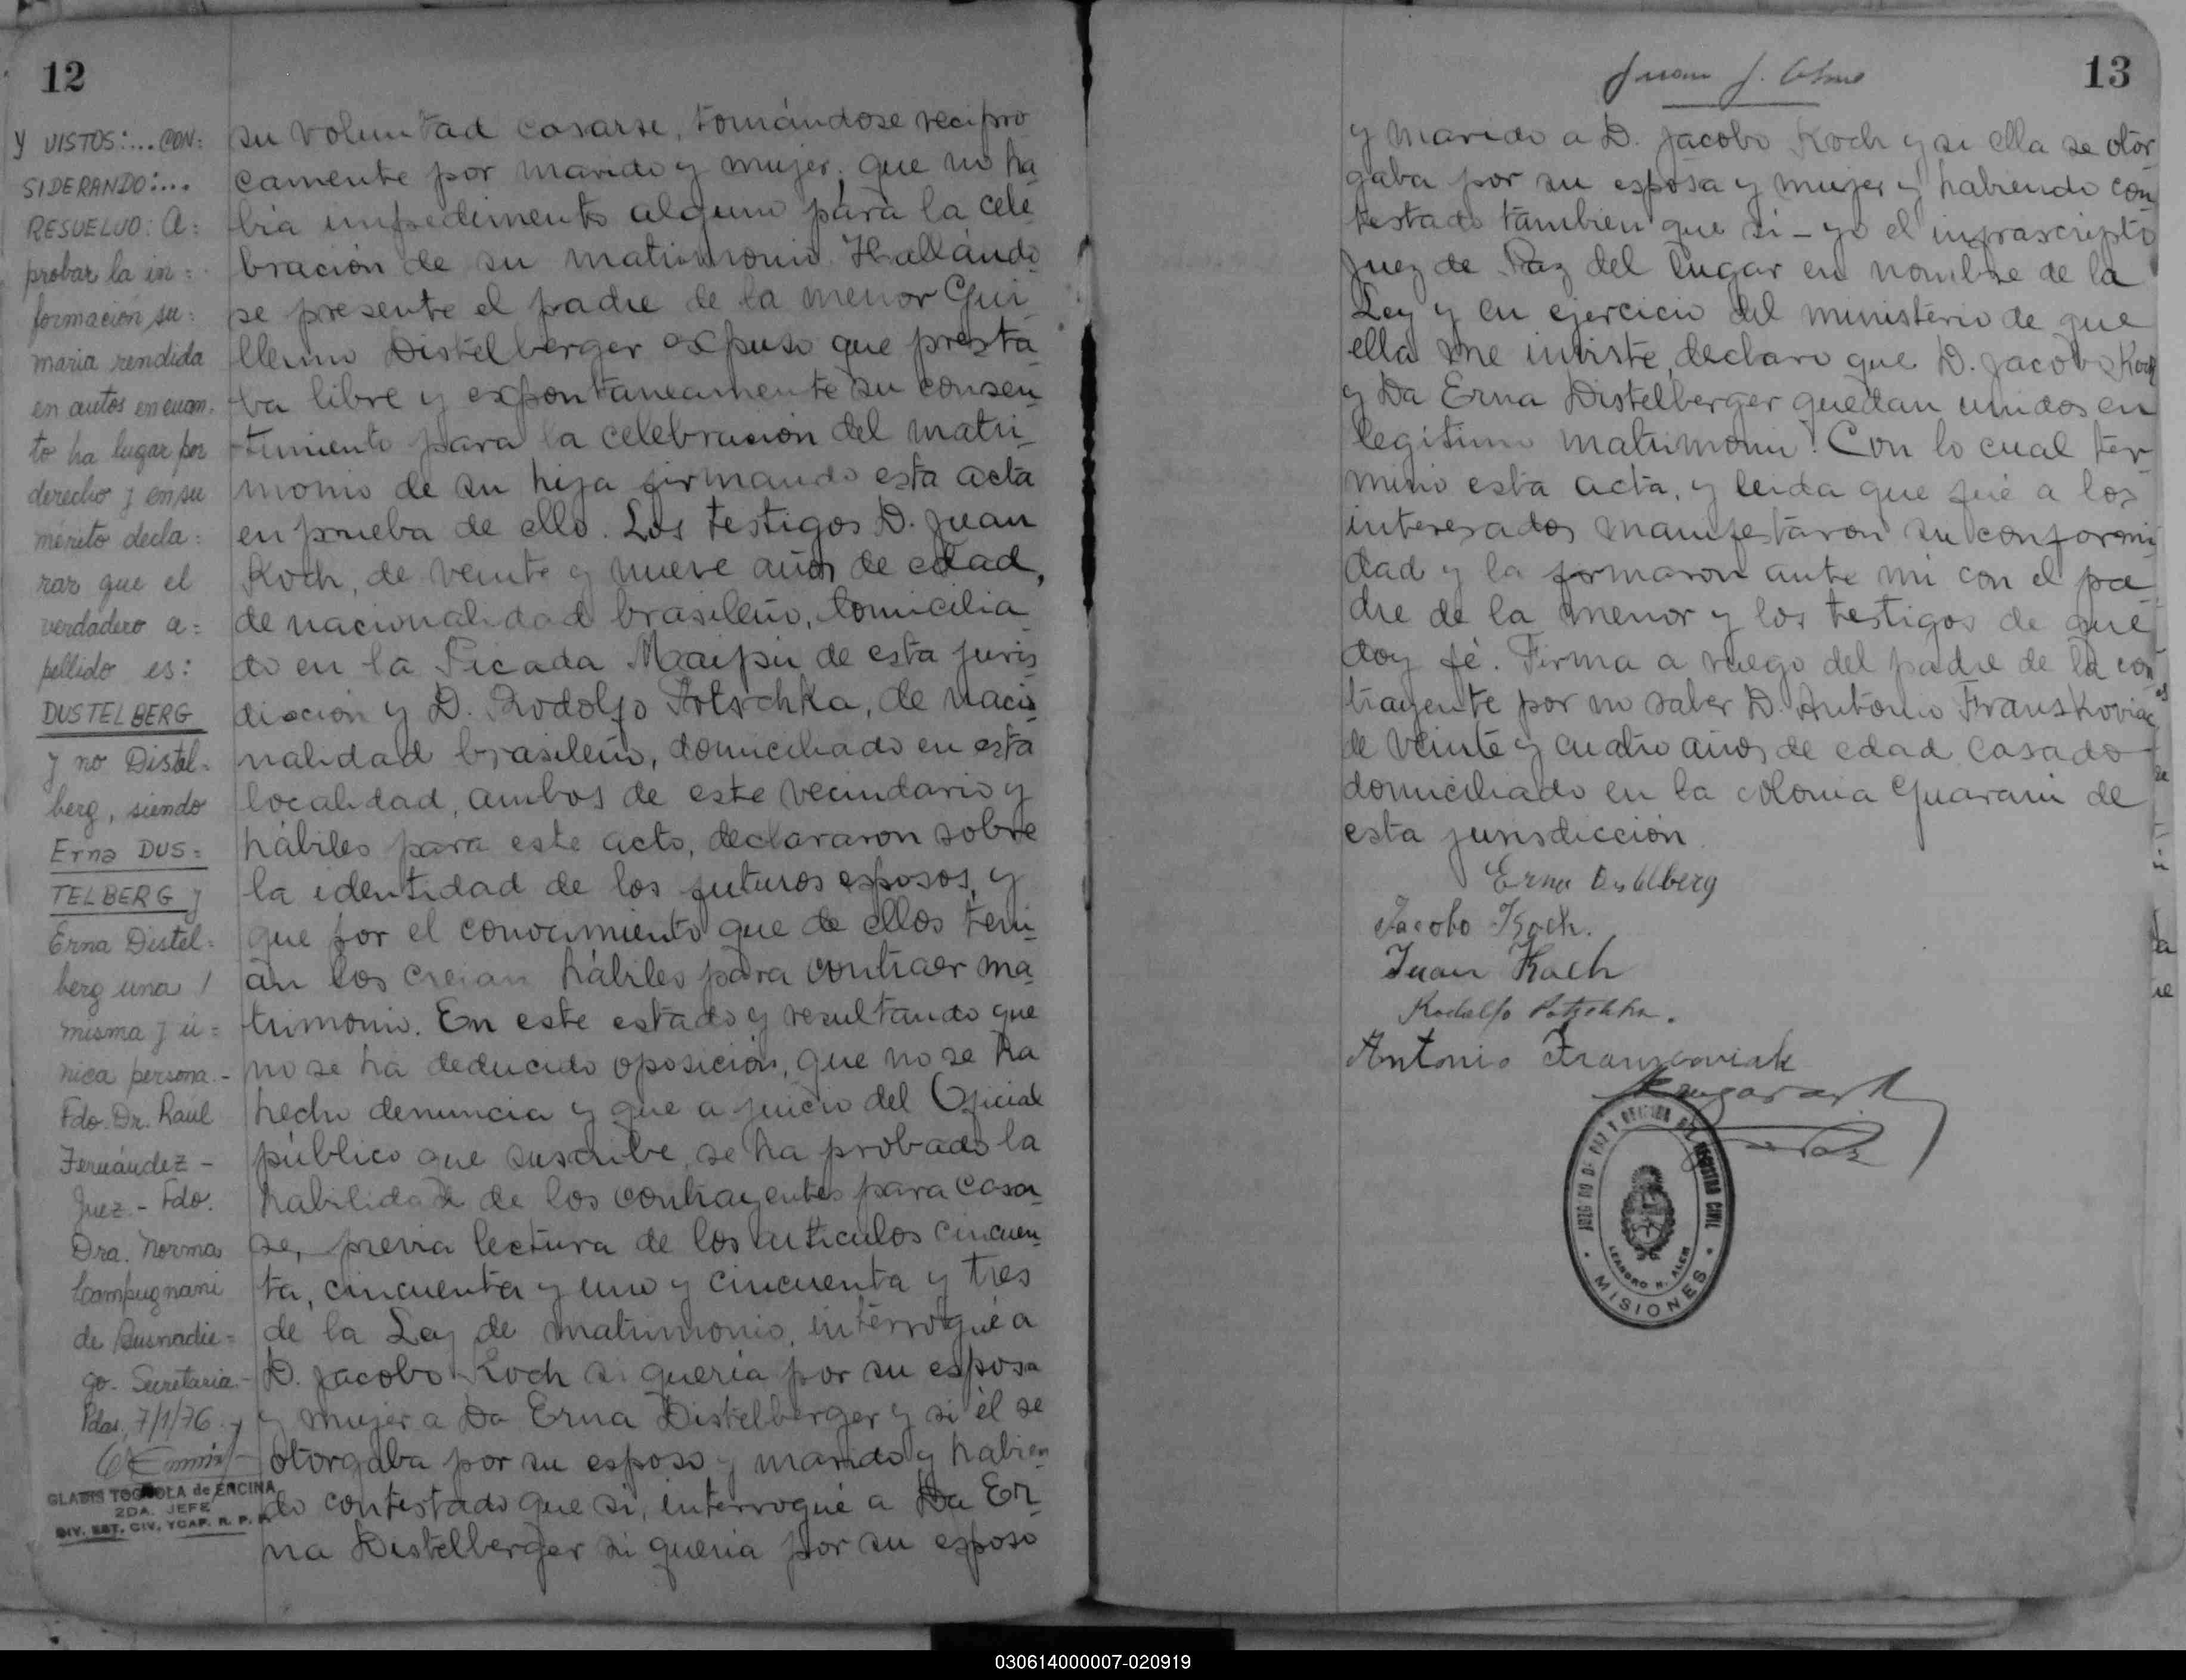 12
y VISTOS:... CON:
SIDERANDO:...
RESUELVO: A:
probar la in:
formación su:
maria rendida
en autos en cuan.
to ha lugar por
derecho y en su
mérito decla:
rar que el
verdadero a:
pellido es:
DUSTELBERG
y no Distel-
berg, siendo
Erna DUS=
TELBERG y
Erna Distel=
berg una
misma y ú=
nica persona.-
Fdo. Dr. Raúl
Fernández -
Juez - Fdo.
Dra. Norma
Campugnani
de
go. Secretaria.-
Pdas, 7/1/76.-
GLADIS TOGNOLA de ENCINA
2DA. JEFE
DIV. EST. CIV. YCAP. R. P. P.
su voluntad casarse, tomándose recipro
camente por marido y mujer; que no ha
bía impedimento alguno para la cele
bración de su matrimonio. Hallándo
se presente el padre de la menor Gui
llermo Distelberger expuso que presta
ba libre y expontaneamente su consen
timiento para la celebración del matri
monio de su hija firmando esta acta
en prueba de ello. Los testigos D. Juan
Koch, de veinte y nueve años de edad,
de nacionalidad brasileño, domicilia
do en la Picada Maipú de esta juris
dicción y D. Rodolfo Potschka, de nacio
nalidad brasileño, domiciliado en esta
localidad, ambos de este vecindario y
hábiles para este acto, declararon sobre
la identidad de los futuros esposos, y
que por el conocimiento que de ellos tení
an los creían hábiles para contraer ma
trimonio. En este estado y resultando que
no se ha deducido oposición, que no se ha
hecho denuncia y que a juicio del Oficial
público que suscribe, se ha probado la
habilidad de los contrayentes para casar
se, previa lectura de los artículos cincuen
ta, cincuenta y uno y cincuenta y tres
de la Ley de matrimonio, interrogué a
D. Jacobo Koch si quería por su esposa
y mujer a Da Erna Distelberger y si él se
otorgaba por su esposo y marido y habien
do contestado que si, interrogué a Da Er
na Distelberger si quería por su esposo
13
Juan J.
y marido a D. Jacobo Koch y si ella se otor
gaba por su esposa y mujer y habiendo con
testado también que si - yo el infrascripto
Juez de Paz del lugar en nombre de la
Ley y en ejercicio del ministerio de que
ella me inviste, declaro que D. Jacobo Koch
y Da Erna Distelberger quedan unidos en
legítimo matrimonio. Con lo cual ter
minó esta acta, y leída que fué a los
interesados manifestaron su conformi
dad y la firmaron ante mi con el pa
dre de la menor y los testigos de que
doy fé. Firma a ruego del padre de la con
trayente por no saber D. Antonio Franskoviac
de veinte y cuatro años de edad casado
domiciliado en la colonia Guaraní de
esta jurisdicción
Erna Distelberg
Jacobo Koch.
Juan Koch
Rodolfo Potschka.
Antonio Franzcoviak
JUZGADO DE PAZ Y OFICINA DEL REGISTRO CIVIL
LEANDRO N. ALEM
MISIONES
030614000007-020919